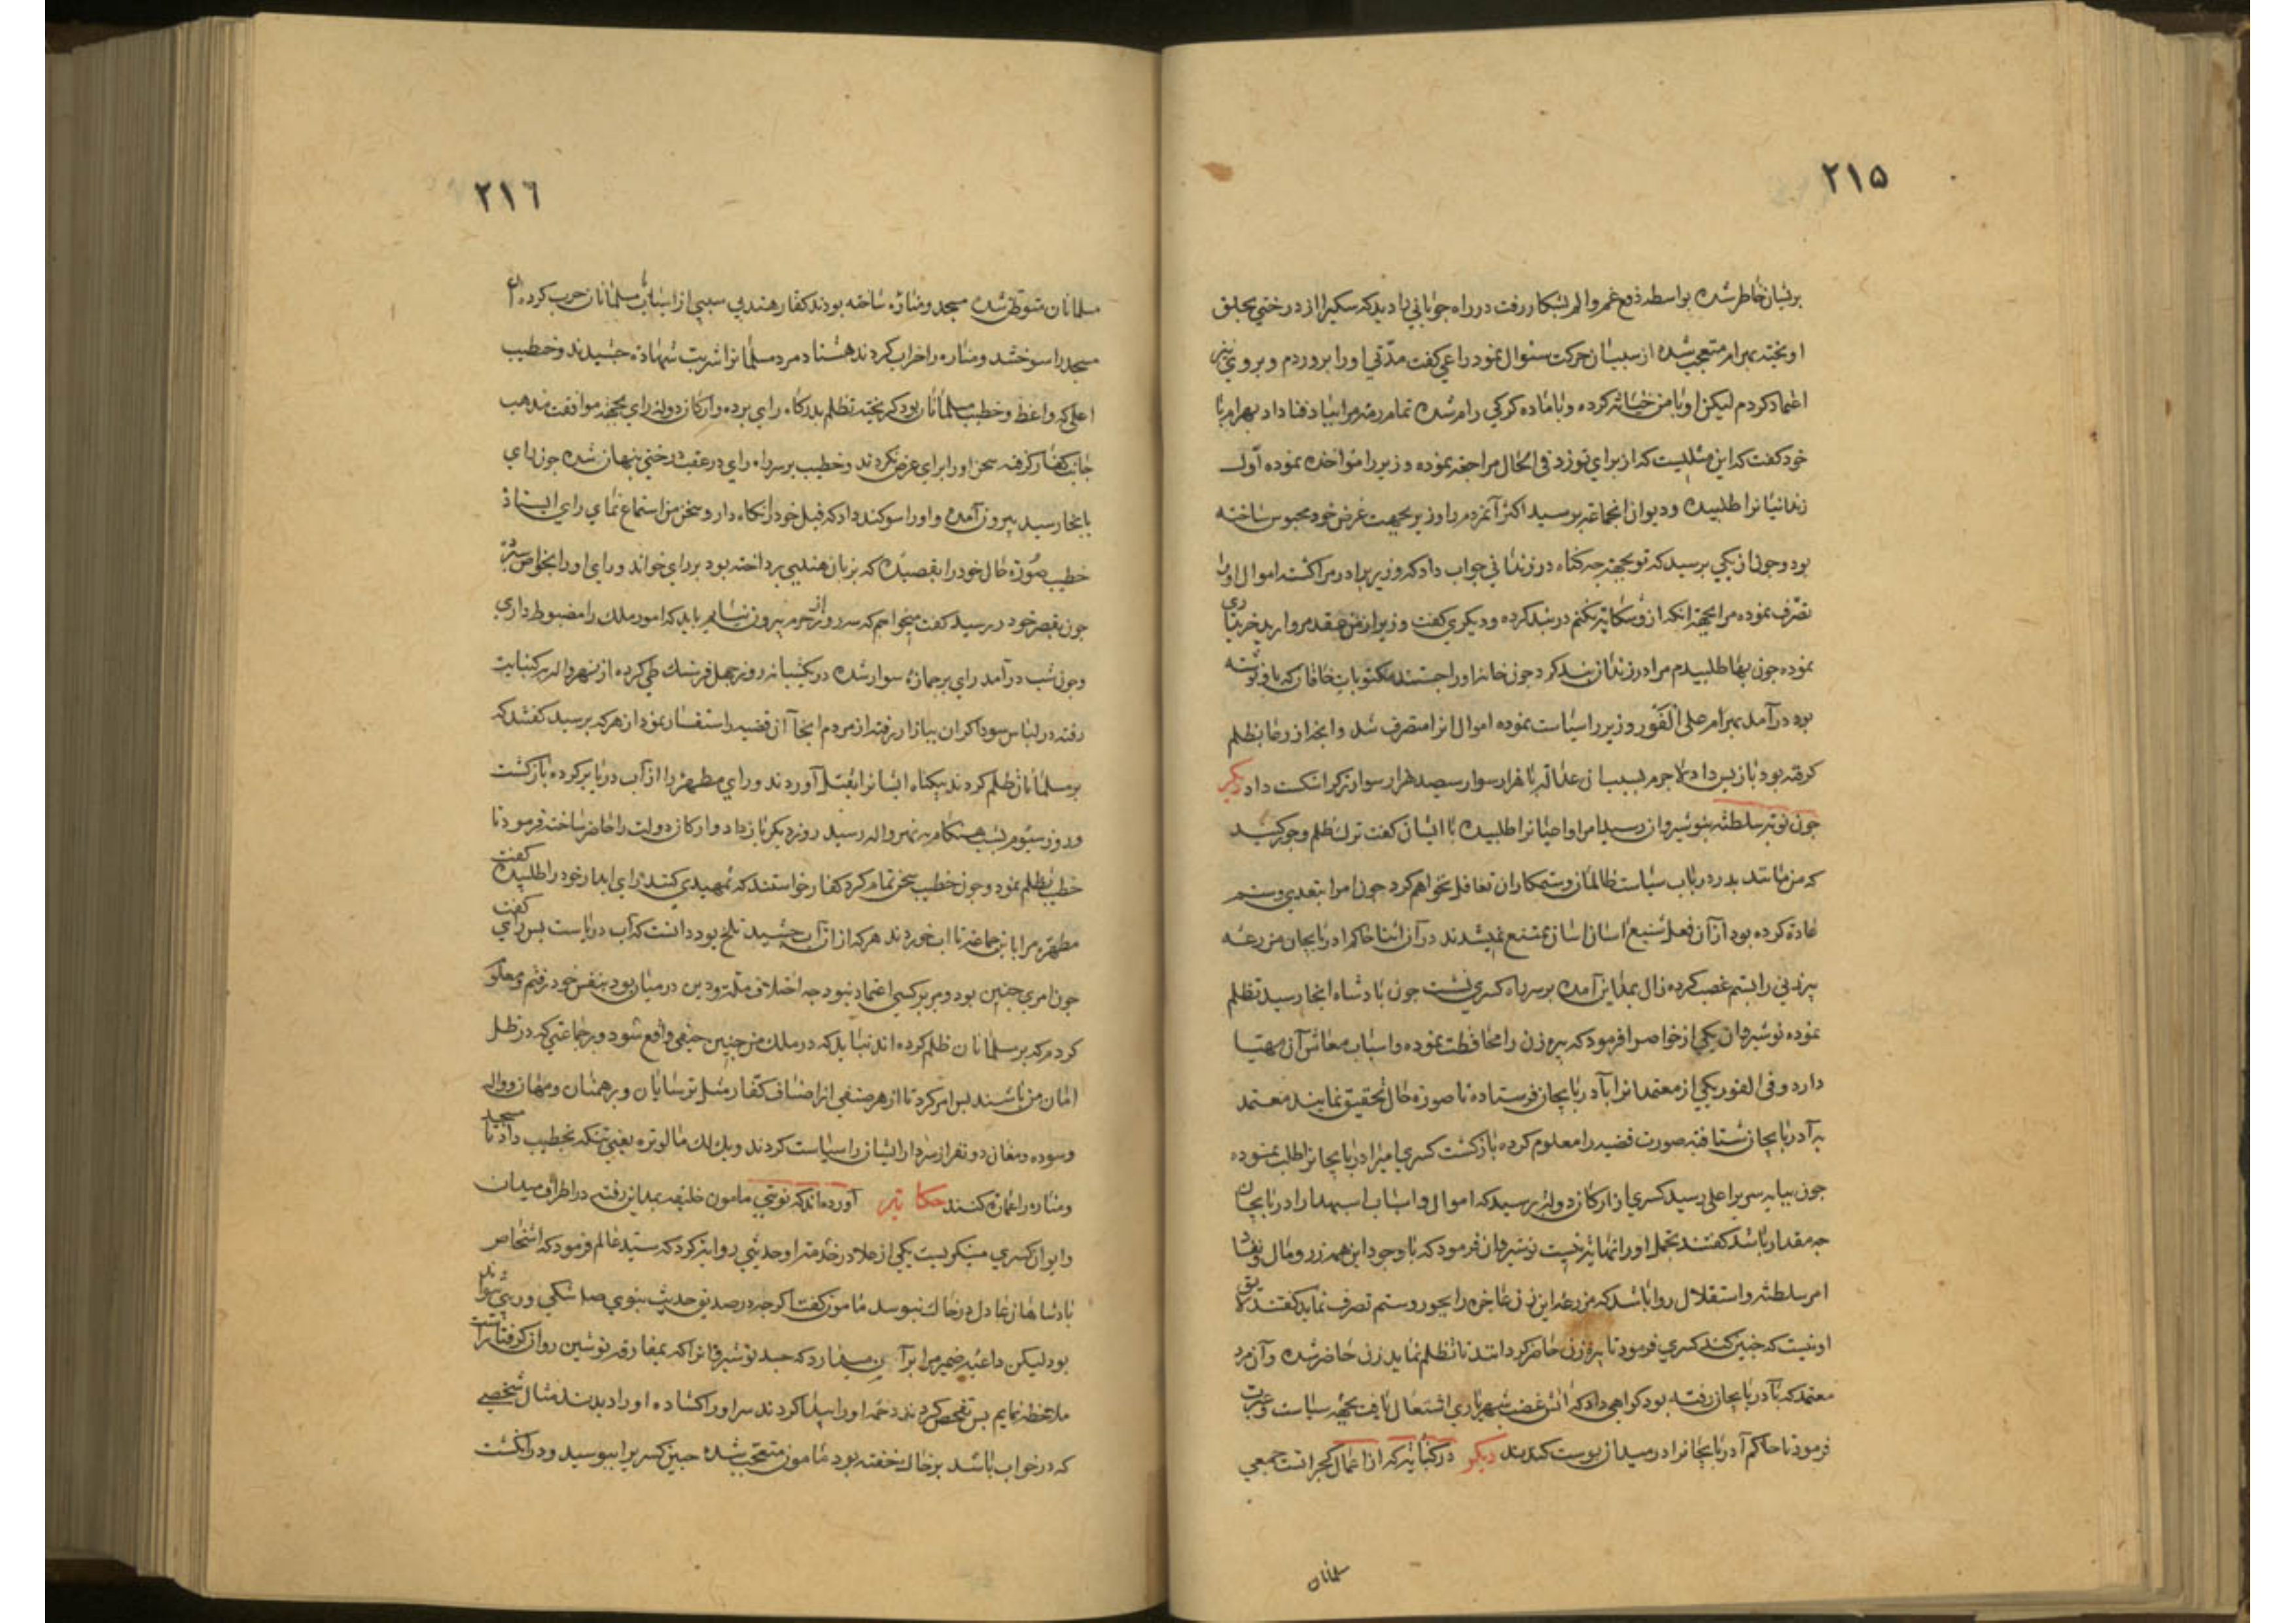 ۲۱۵
بریشان خاطر شده بواسطه دفع غم والم بشکار رفت در راه جوبانی را دید که سکیرا از درختی بحلق
اویخته بهرام متعجب شده از سبب ان حرکت سئوال نمود راعی کفت مدّتی اورا بروردم و بروی
اعتماد کردم لیکن او با من خیانة کرده و با ماده کرکی رام شده تمام رمه مرا بباد فنا داد بهرام با
خود کفت که این مثلیست که از برای تو زد فی الحال مراجعة نموده وزیر را مواخذه نموده اول
زندانیانرا طلبیده و دیوان انجماعة برسید اکثر آنمردم را وزیر بجهت غرض خود محبوس ساخته
بود وجون از یکی برسید که تو بجهة جه کناه در زندانی جواب داد که وزیر برادر مرا کشته اموال اورا
تصّرف نموده مرا بجهة انکه از و شکایة نکنم در بند کرده و دیکری کفت وزیر از من عقد مروارید خریداری
نموده جون بها طلبیدم مرا در زندان بند کرد جون خانه اورا جستند مکتوبات خاقان که باو نوشته
بود در آمد بهرام علی الفور وزیر را سیاست نموده اموال انرا متصرف شد وانجه از رعایا بظلم
کرفته بود باز بس داد لاجرم بسبب ان عدالة با هزار سوار سیصد هزار سوار ترکرا شکست داد دیکر
جون نوبة سلطنة بنوشیروان رسید امرا واعیانرا طلبیده با ایشان کفت ترک ظلم وجور کنید
که من مانند بدر در باب سیاست ظالمان وستمکاران تغافل نخواهم کرد جون امرا بتعدی وستم
عادة کرده بود از آن فعل شنیع اسان اسان ممتنع نمیشدند در آن اثنا حاکم ادربایجان مزرعه
بیرزنی را بستم غصب کرده زال بمداین آمده بر سر راه کسری نشست جون بادشاه انجا رسید تظلم
نموده نوشیروان یکی از خواص را فرمود که بیره زن را محافظت نموده واسباب معاش آن مهیا
دارد وفی الفور یکی از معتمدانرا بآدربایجان فرستاده تا صورة حال تحقیق نمایند معتمد
به آدربایجان شتافته صورت قضیه را معلوم کرده بازکشت کسری امیر ادربایجانرا طلب نموده
جون ببایه سریر اعلی رسید کسری از ارکان دولة برسید که اموال واسباب اسبهدار ادربایجان
جه مقدار باشد کفتند تجمل اورا نهایة نیست نوشیروان فرمود که با وجود این همه زر ومال ونفاد
امر سلطنة واستقلال روا باشد که مزرعه این زن عاجزه را بجور وستم تصرف نماید کفتند لایق
او نیست که جنین کند کسری فرمود تا بیره زن حاضر کردانند تا تظلم نماید زن حاضر شده وآن مرد
معتمد که بآدربایجان رفته بود کواهی داد که اتش غضب شهریاری اشتعال یافت بجهة سیاست وعبرت
فرمود تا حاکم آدربایجانرا در میدان بوست کندند دیکر در کنبایة که از اعمال کجراتست جمعی
مسلمانان
۲۱٦
مسلمانان متوطن شده مسجد ومناره ساخته بودند کفار هند بی سببی از اسباب مسلمانان حرب کرده
مسجد را سوختند ومناره را خراب کردند هشتاد مرد مسلمانرا شربت شهادة جشیدند وخطیب
اعلی که واعظ وخطیب مسلمانان بود کریخته تظلم بدرکاه رای برده وارکان دولة رای بجهة موافقت مذهب
جانب کفار کرفته سخن اورا برای عرض نکردند وخطیب بر سر راه رای در عقب درختی بنهان شده جون رای
بانجا رسید بیرون آمده واورا سوکند داد که فیل خود را نکاه دار وسخن من استماع نمای رای ایستاد
خطیب صورة حال خود را بقصیده که بزبان هندیی برداخته بود بر رای خواند ورای اورا بخواص سبرد
جون بقصر خود رسید کفت میخواهم که سه روز از حرم بیرون نیایم باید که امور ملک را مضبوط داری
وجون شب درآمد رای بر جمازه سوار شده در یکشبانه روز جهل فرسنک طی کرده از نهرواله بر کنبایت
رفته در لباس سوداکران ببازار رفته از مردم انجا آن قضیه را استفسار نمود از هرکه برسید کفتند که
بر مسلمانان ظلم کردند بیکناه ایشانرا بقتل آوردند ورای مطهره را از آب دریا بر کرده بازکشت
وروز سیوم شب هنکام به نهرواله رسید روز دیکر بار داد وارکان دولت را حاضر ساخته فرمود تا
خطیب تظلم نمود وجون خطیب سخن تمام کرد کفار خواستند که تمهیدی کنند رای ابدار خود را طلبیده کفت
مطهره مرا باین جماعة ده تا اب خوردند هرکه از ان آب جشید تلخ بود دانست که آب دریاست بس رای کفت
جون امری جنین بود ومرا بر کسی اعتماد نبود جه اختلاف ملة ودین در میان بود بنفس خود رفتم ومعلوم
کردم که بر مسلمانان ظلم کرده اند نباید که در ملک من جنین حیفی واقع شود وبر جماعتی که در ظل
امان من باشند بس امر کرد تا از هر صنفی از اصناف کفار مثل ترسایان وبرهمنان
وسوده ومغان دو نفر از سردار ایشان را سیاست کردند ویک لک مالوتره یعنی تنکه بخطیب داد تا مسجد
ومناره را عمارة کنند حکایة آورده اند که نوبتی مامون خلیفه بمداین رفته در اطراف میدان
وایوان کسری مینکریست یکی از علما در خدمة او حدیثی روایة کرد که سید عالم فرمود که اشخاص
بادشاهان عادل در خاک نبوسد مامون کفت اکرجه در صدق حدیث نبوی صلعم شکی وریبی
بود لیکن داعیه ضمیر مرا بر آن میدارد که جسد نوشیروانرا که بمفارقه نوشین روان کرفتار است
ملاحظه نمایم بس تفحص کردند دخمه اورا بیدا کردند سر اورا کشاده اورا دیدند مثال شخصی
که در خواب باشد بر خاک خفته بود مامون متعجب شده جبین کسری را ببوسید ودر انکشت